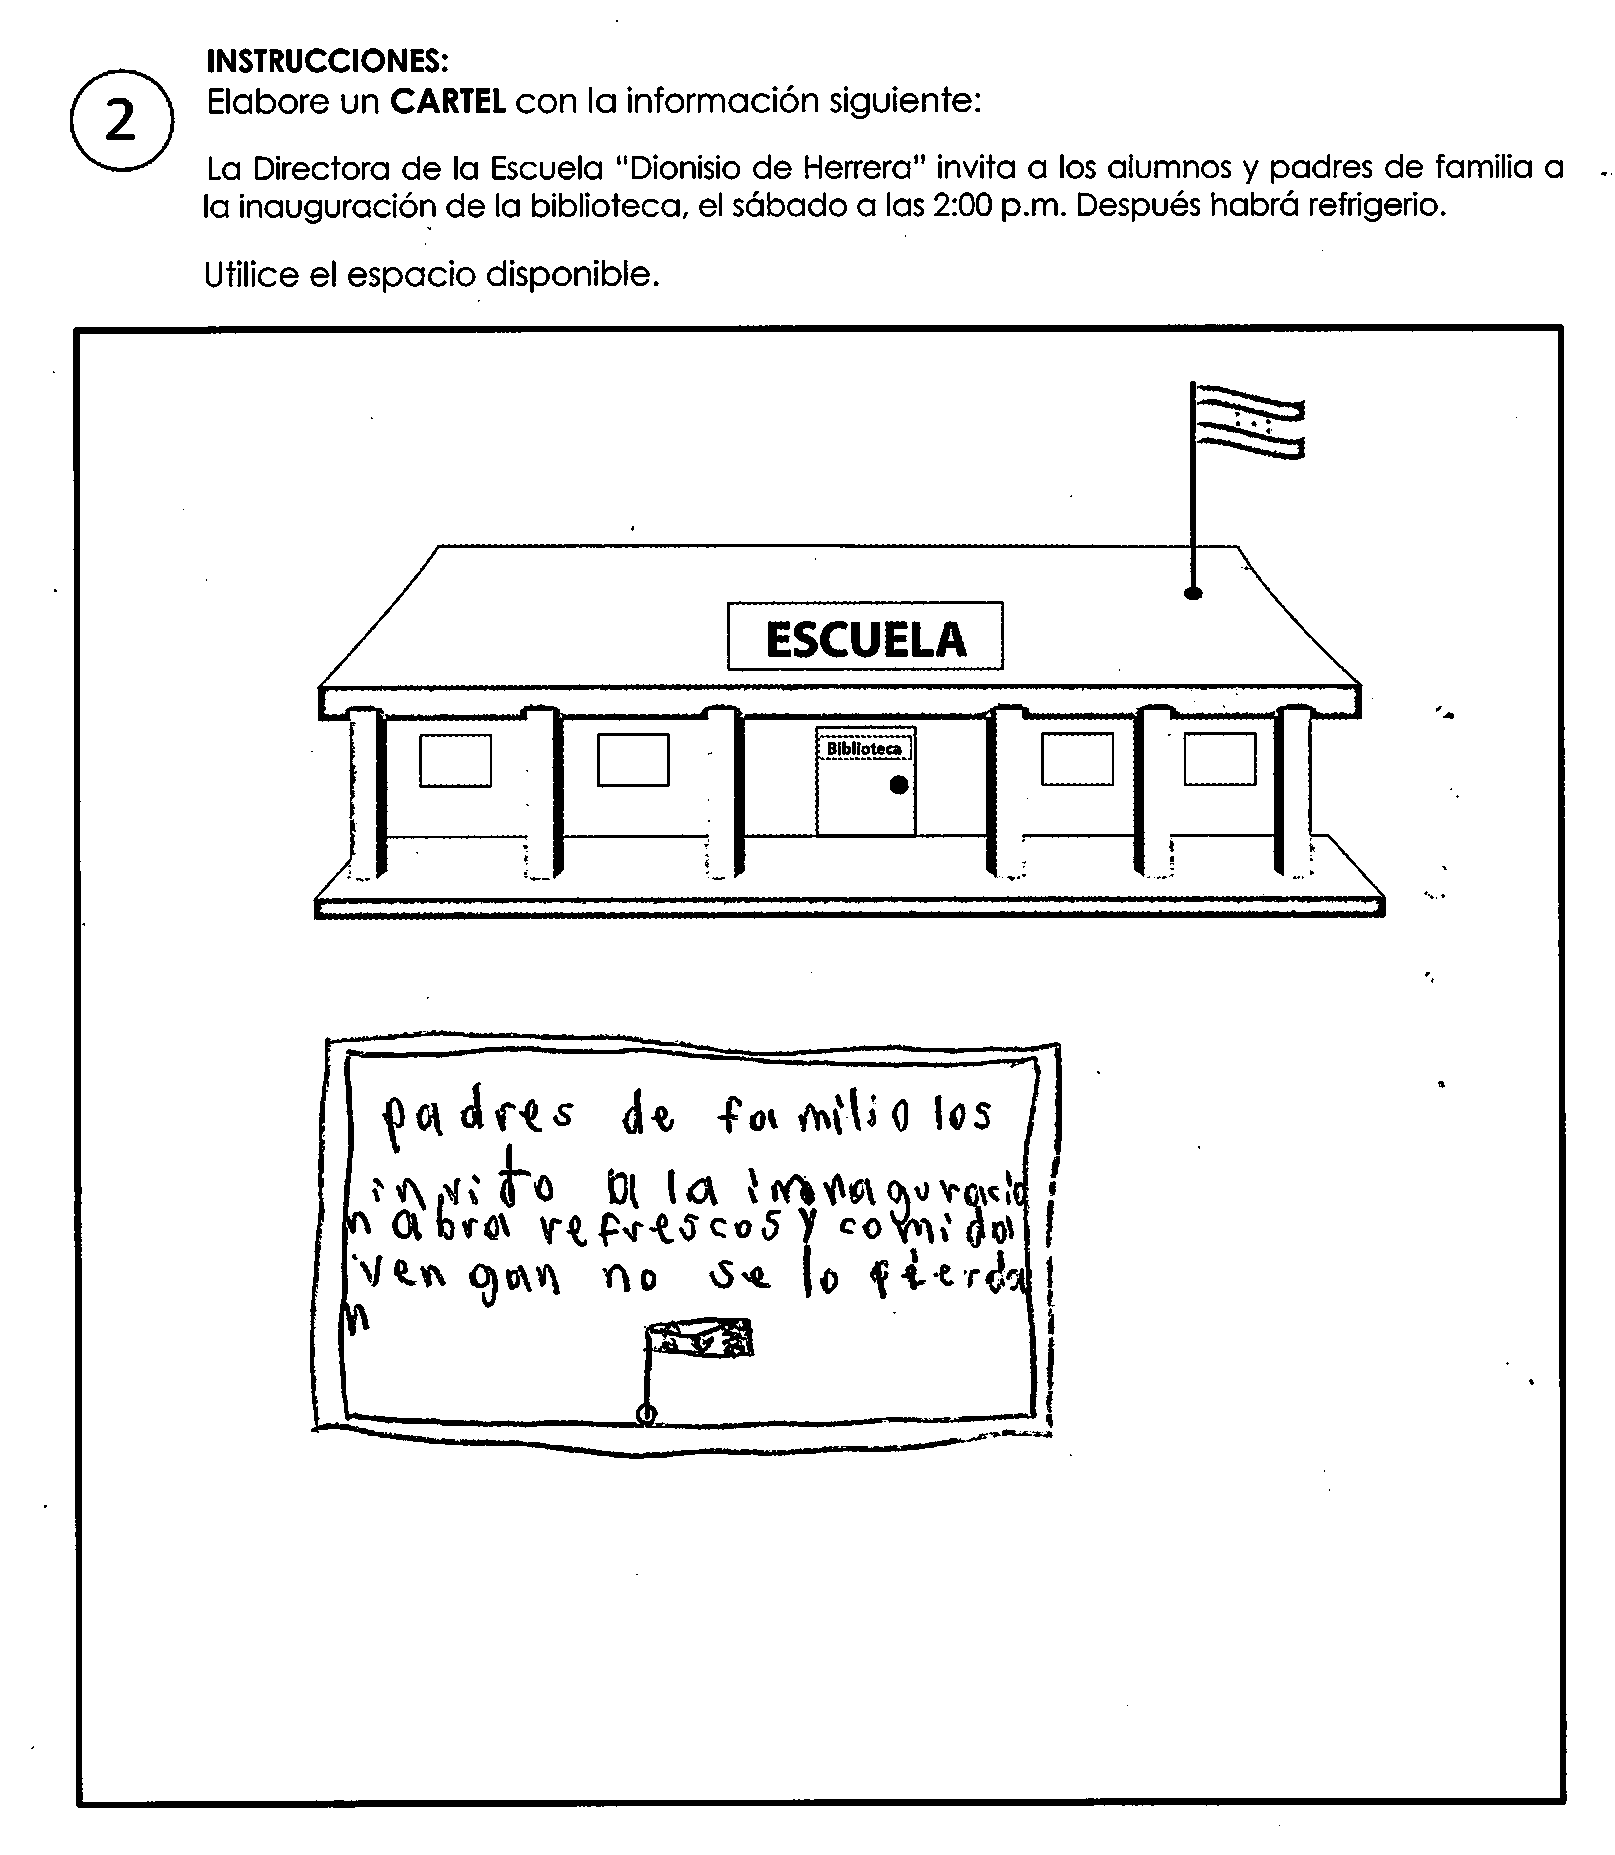 INSTRUCCIONES:
2
Elabore un CARTEL con la información siguiente:
La Directora de la Escuela "Dionisio de Herrera" invita a los alumnos y padres de familia a
la inauguración de la biblioteca, el sábado a las 2:00 p.m. Después habrá refrigerio.
Utilice el espacio disponible.
ESCUELA
Biblioteca
padres de familio los
invito a la innaguracio
n abra refrescos y comida
vengan no se lo pierda
n